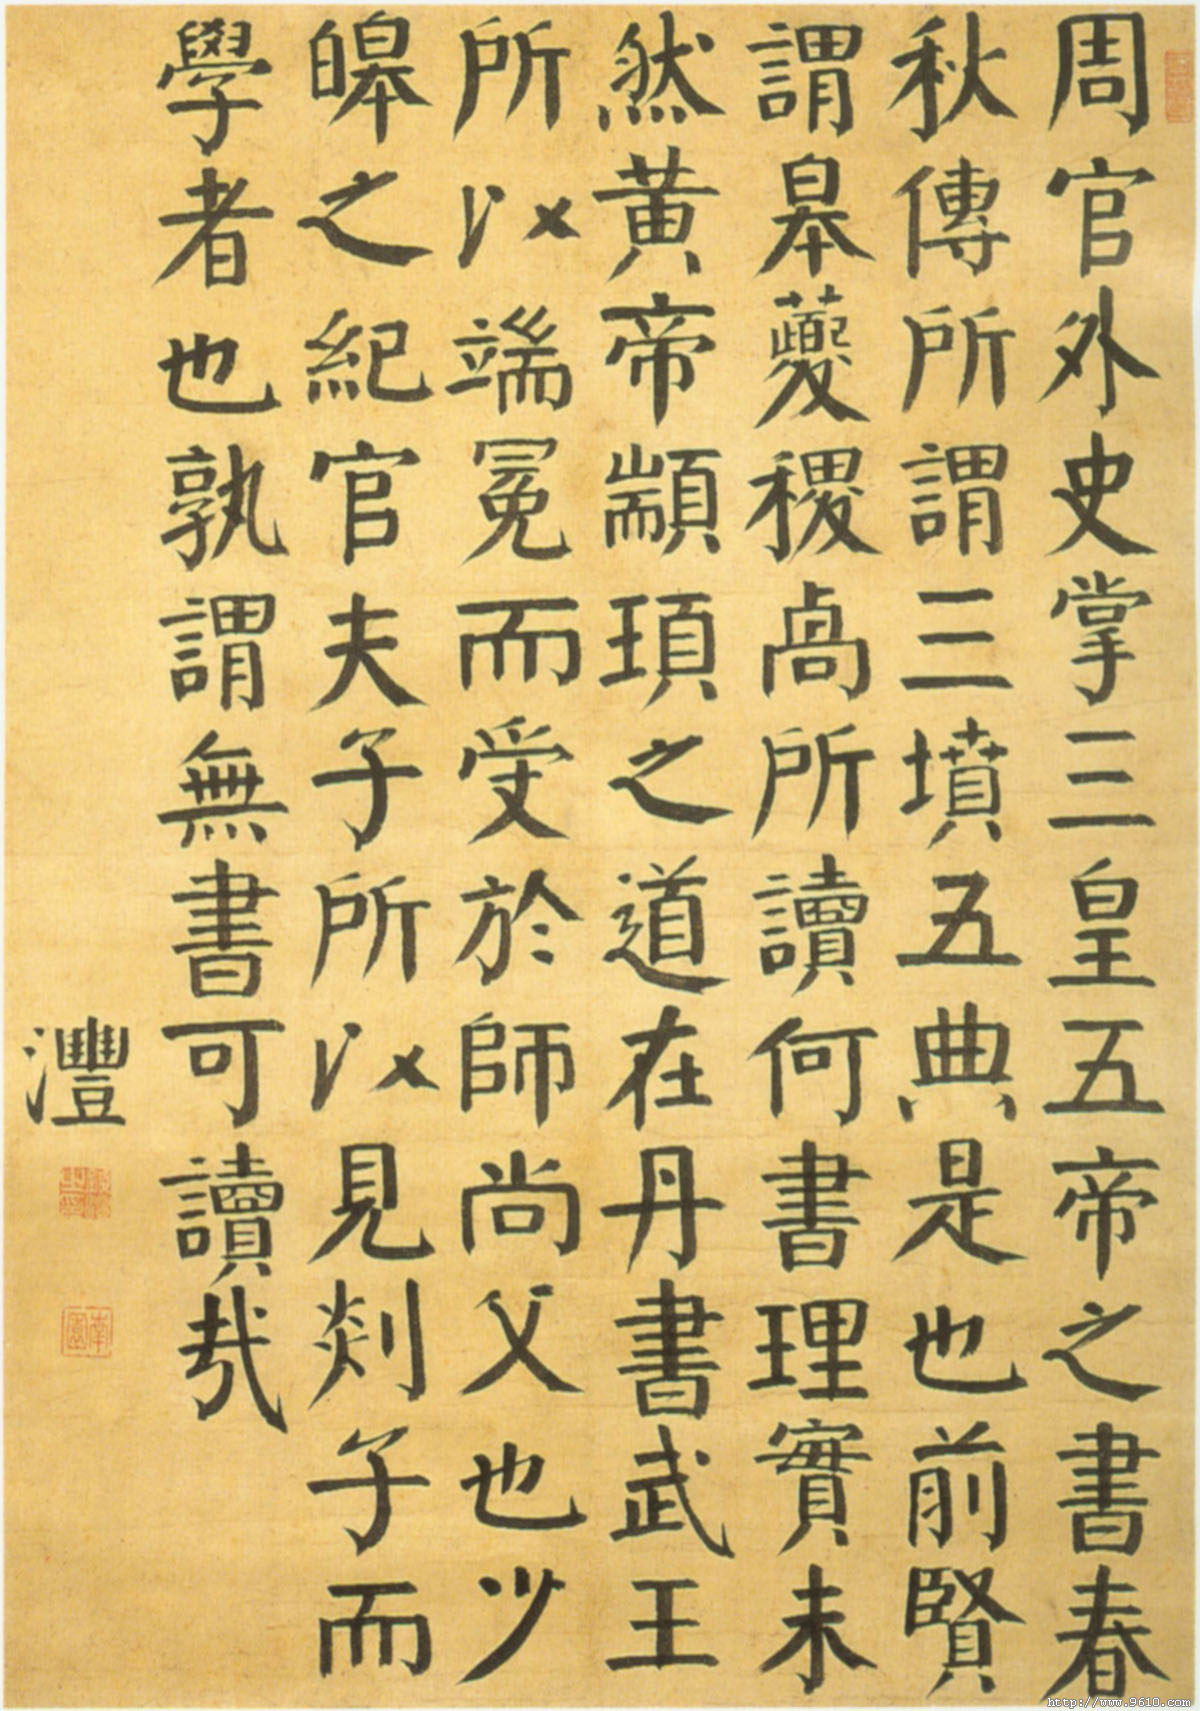 周官外史掌三皇五帝之書春
秋傳所謂三墳五典是也前賢
謂皋夔稷卨所讀何書理實未
然黃帝顓頊之道在丹書武王
所以端冕而受於師尚父也少
皞之紀官夫子所以見剡子而
學者也孰謂無書可讀哉
灃
南園
http://www.9610.com